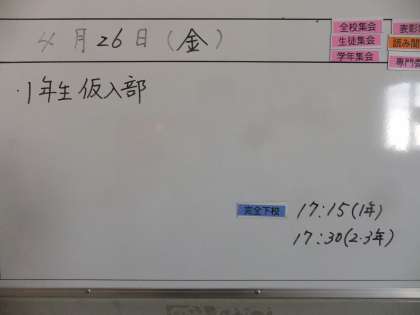 4月26日(金)
全校集会
生徒集会
学年集会
・1年生 仮入部
完全下校 17:15(1年)
17:30(2・3年)